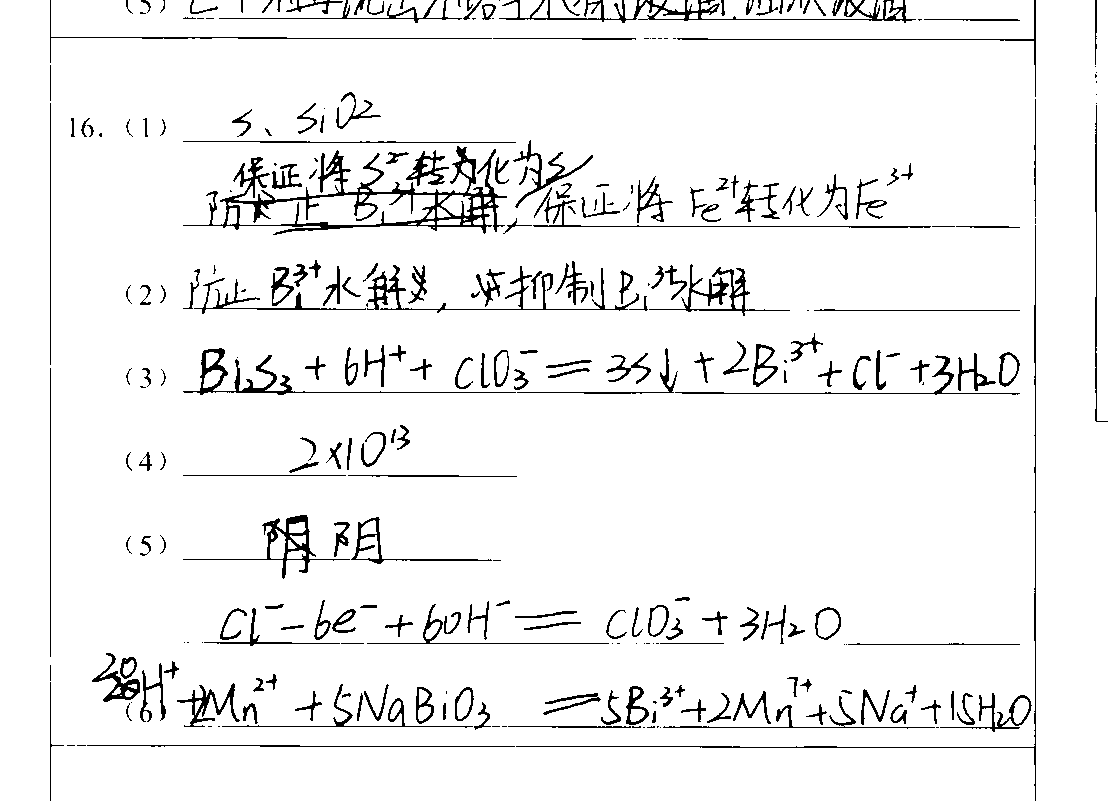 (5)
16.(1) S、SiO2
保证将 S²⁻转化为S
防止 Bi³⁺水解,保证将 Fe²⁺转化为Fe³⁺
(2) 防止Bi³⁺水解,抑制Bi³⁺水解
(3) Bi₂S₃ + 6H⁺ + ClO₃⁻ = 3S↓ + 2Bi³⁺ + Cl⁻ + 3H₂O
(4) 2×10¹³
(5) 阴 阴
Cl⁻ - 6e⁻ + 6OH⁻ = ClO₃⁻ + 3H₂O
(6) H⁺ + 2Mn²⁺ + 5NaBiO₃ = 5Bi³⁺ + 2Mn⁷⁺ + 5Na⁺ + 15H₂O